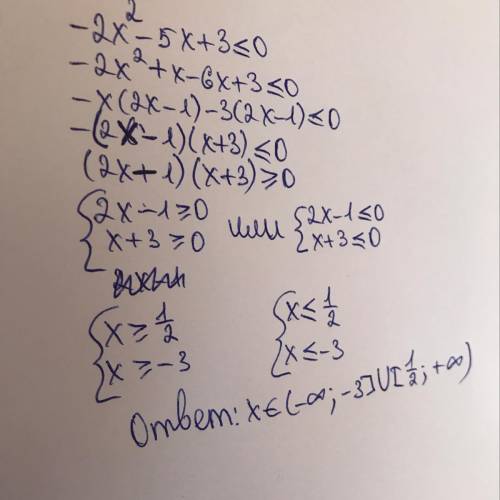 -2x² - 5x + 3 ≤ 0
-2x² + x - 6x + 3 ≤ 0
-x(2x - 1) - 3(2x - 1) ≤ 0
-(2x - 1)(x + 3) ≤ 0
(2x - 1)(x + 3) ≥ 0
{ 2x - 1 ≥ 0 или { 2x - 1 ≤ 0
x + 3 ≥ 0 x + 3 ≤ 0
{ x ≥ 1/2 { x ≤ 1/2
x ≥ -3 x ≤ -3
Ответ: x ∈ (-∞; -3] U [1/2; +∞)